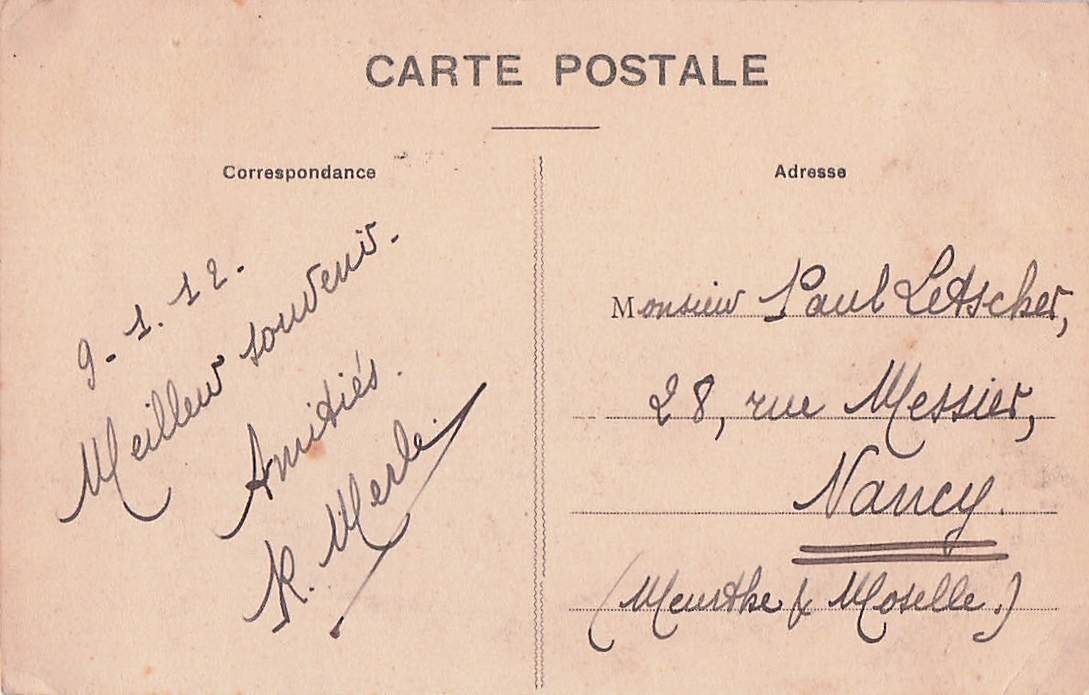 CARTE POSTALE
Correspondance
9.1.12.
Meilleur souvenir.
Amitiés.
R. Merle.
Adresse
Monsieur Paul Letscher,
28, rue Messier,
Nancy.
(Meurthe & Moselle.)